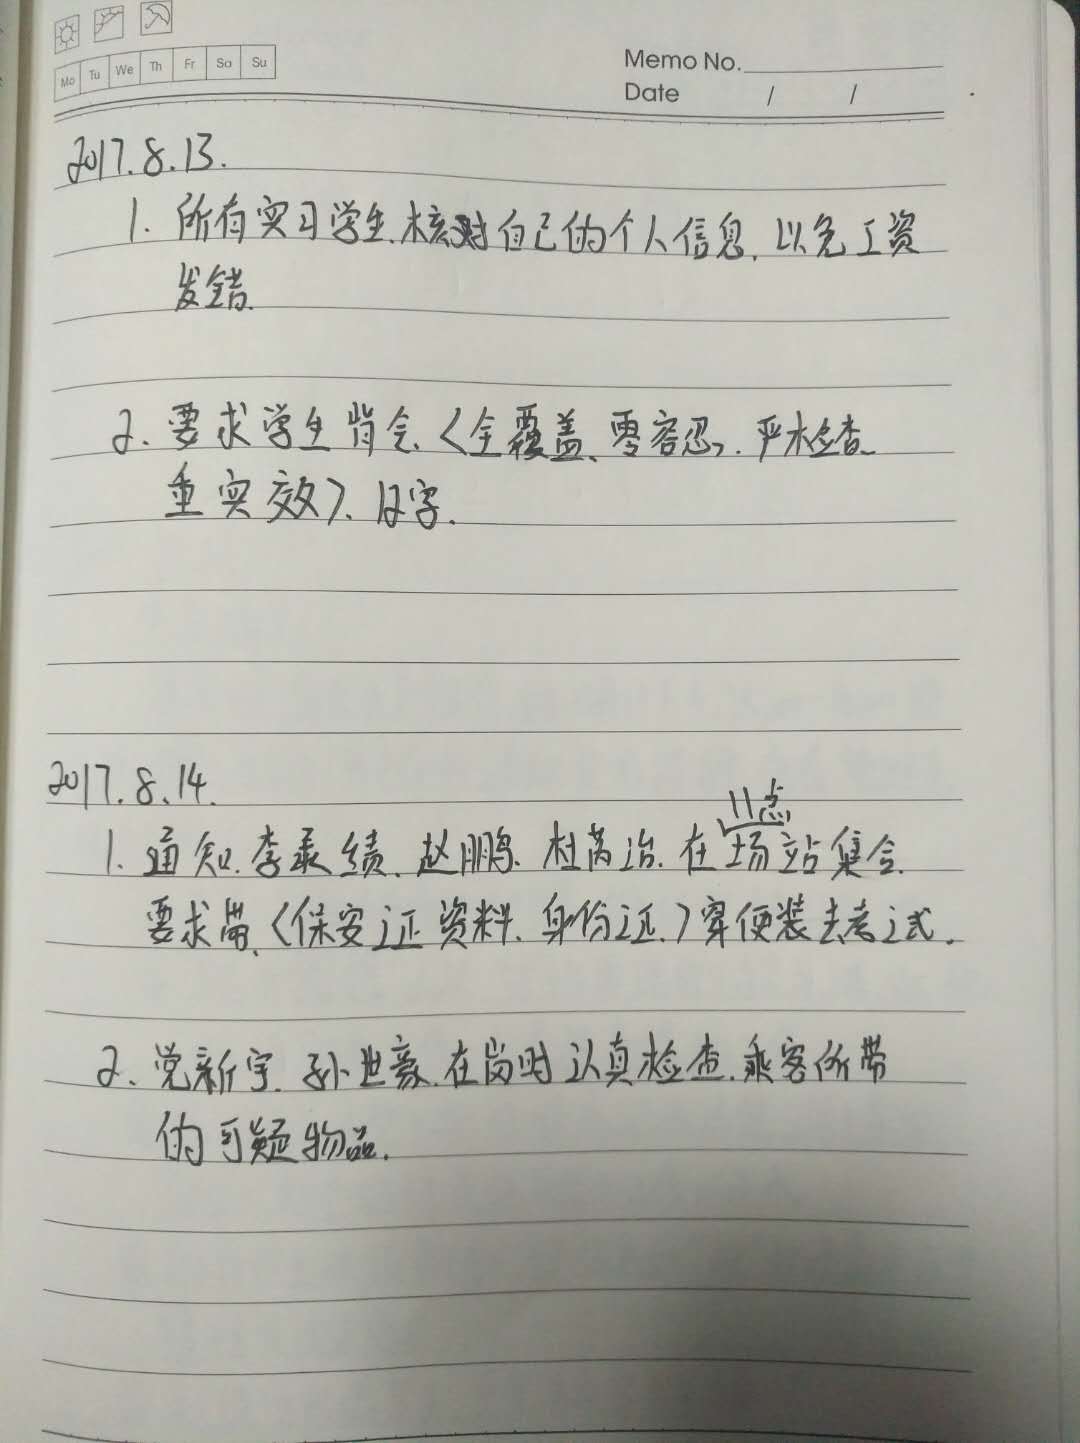 Mo Tu We Th Fr Sa Su
Memo No.
Date / /
2017.8.13.
1. 所有实习学生.核对自己的个人信息.以免工资
发错.
2. 要求学生背会.〈全覆盖、零容忍、严检查、
重实效〉. 12字.
2017.8.14.
11点
1. 通知.李承绩.赵鹏.杜芮治.在场站集合.
要求带.〈保安证资料.身份证.〉穿便装去考试.
2. 党新宇.孙世豪.在岗时认真检查.乘客所带
的可疑物品.